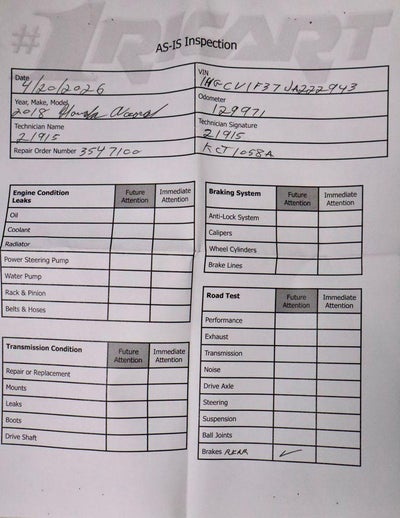 #1
AS-IS Inspection
Date
4/20/2026
VIN
1HGCV1F37JA222943
Year, Make, Model
2018 Honda Accord
Odometer
129971
Technician Name
21915
Technician Signature
21915
Repair Order Number 3547100
KCT1058A
Engine Condition Future Immediate
Leaks Attention Attention
Oil
Coolant
Radiator
Power Steering Pump
Water Pump
Rack & Pinion
Belts & Hoses
Transmission Condition Future Immediate
Attention Attention
Repair or Replacement
Mounts
Leaks
Boots
Drive Shaft
Braking System Future Immediate
Attention Attention
Anti-Lock System
Calipers
Wheel Cylinders
Brake Lines
Road Test Future Immediate
Attention Attention
Performance
Exhaust
Transmission
Noise
Drive Axle
Steering
Suspension
Ball Joints
Brakes REAR ✓